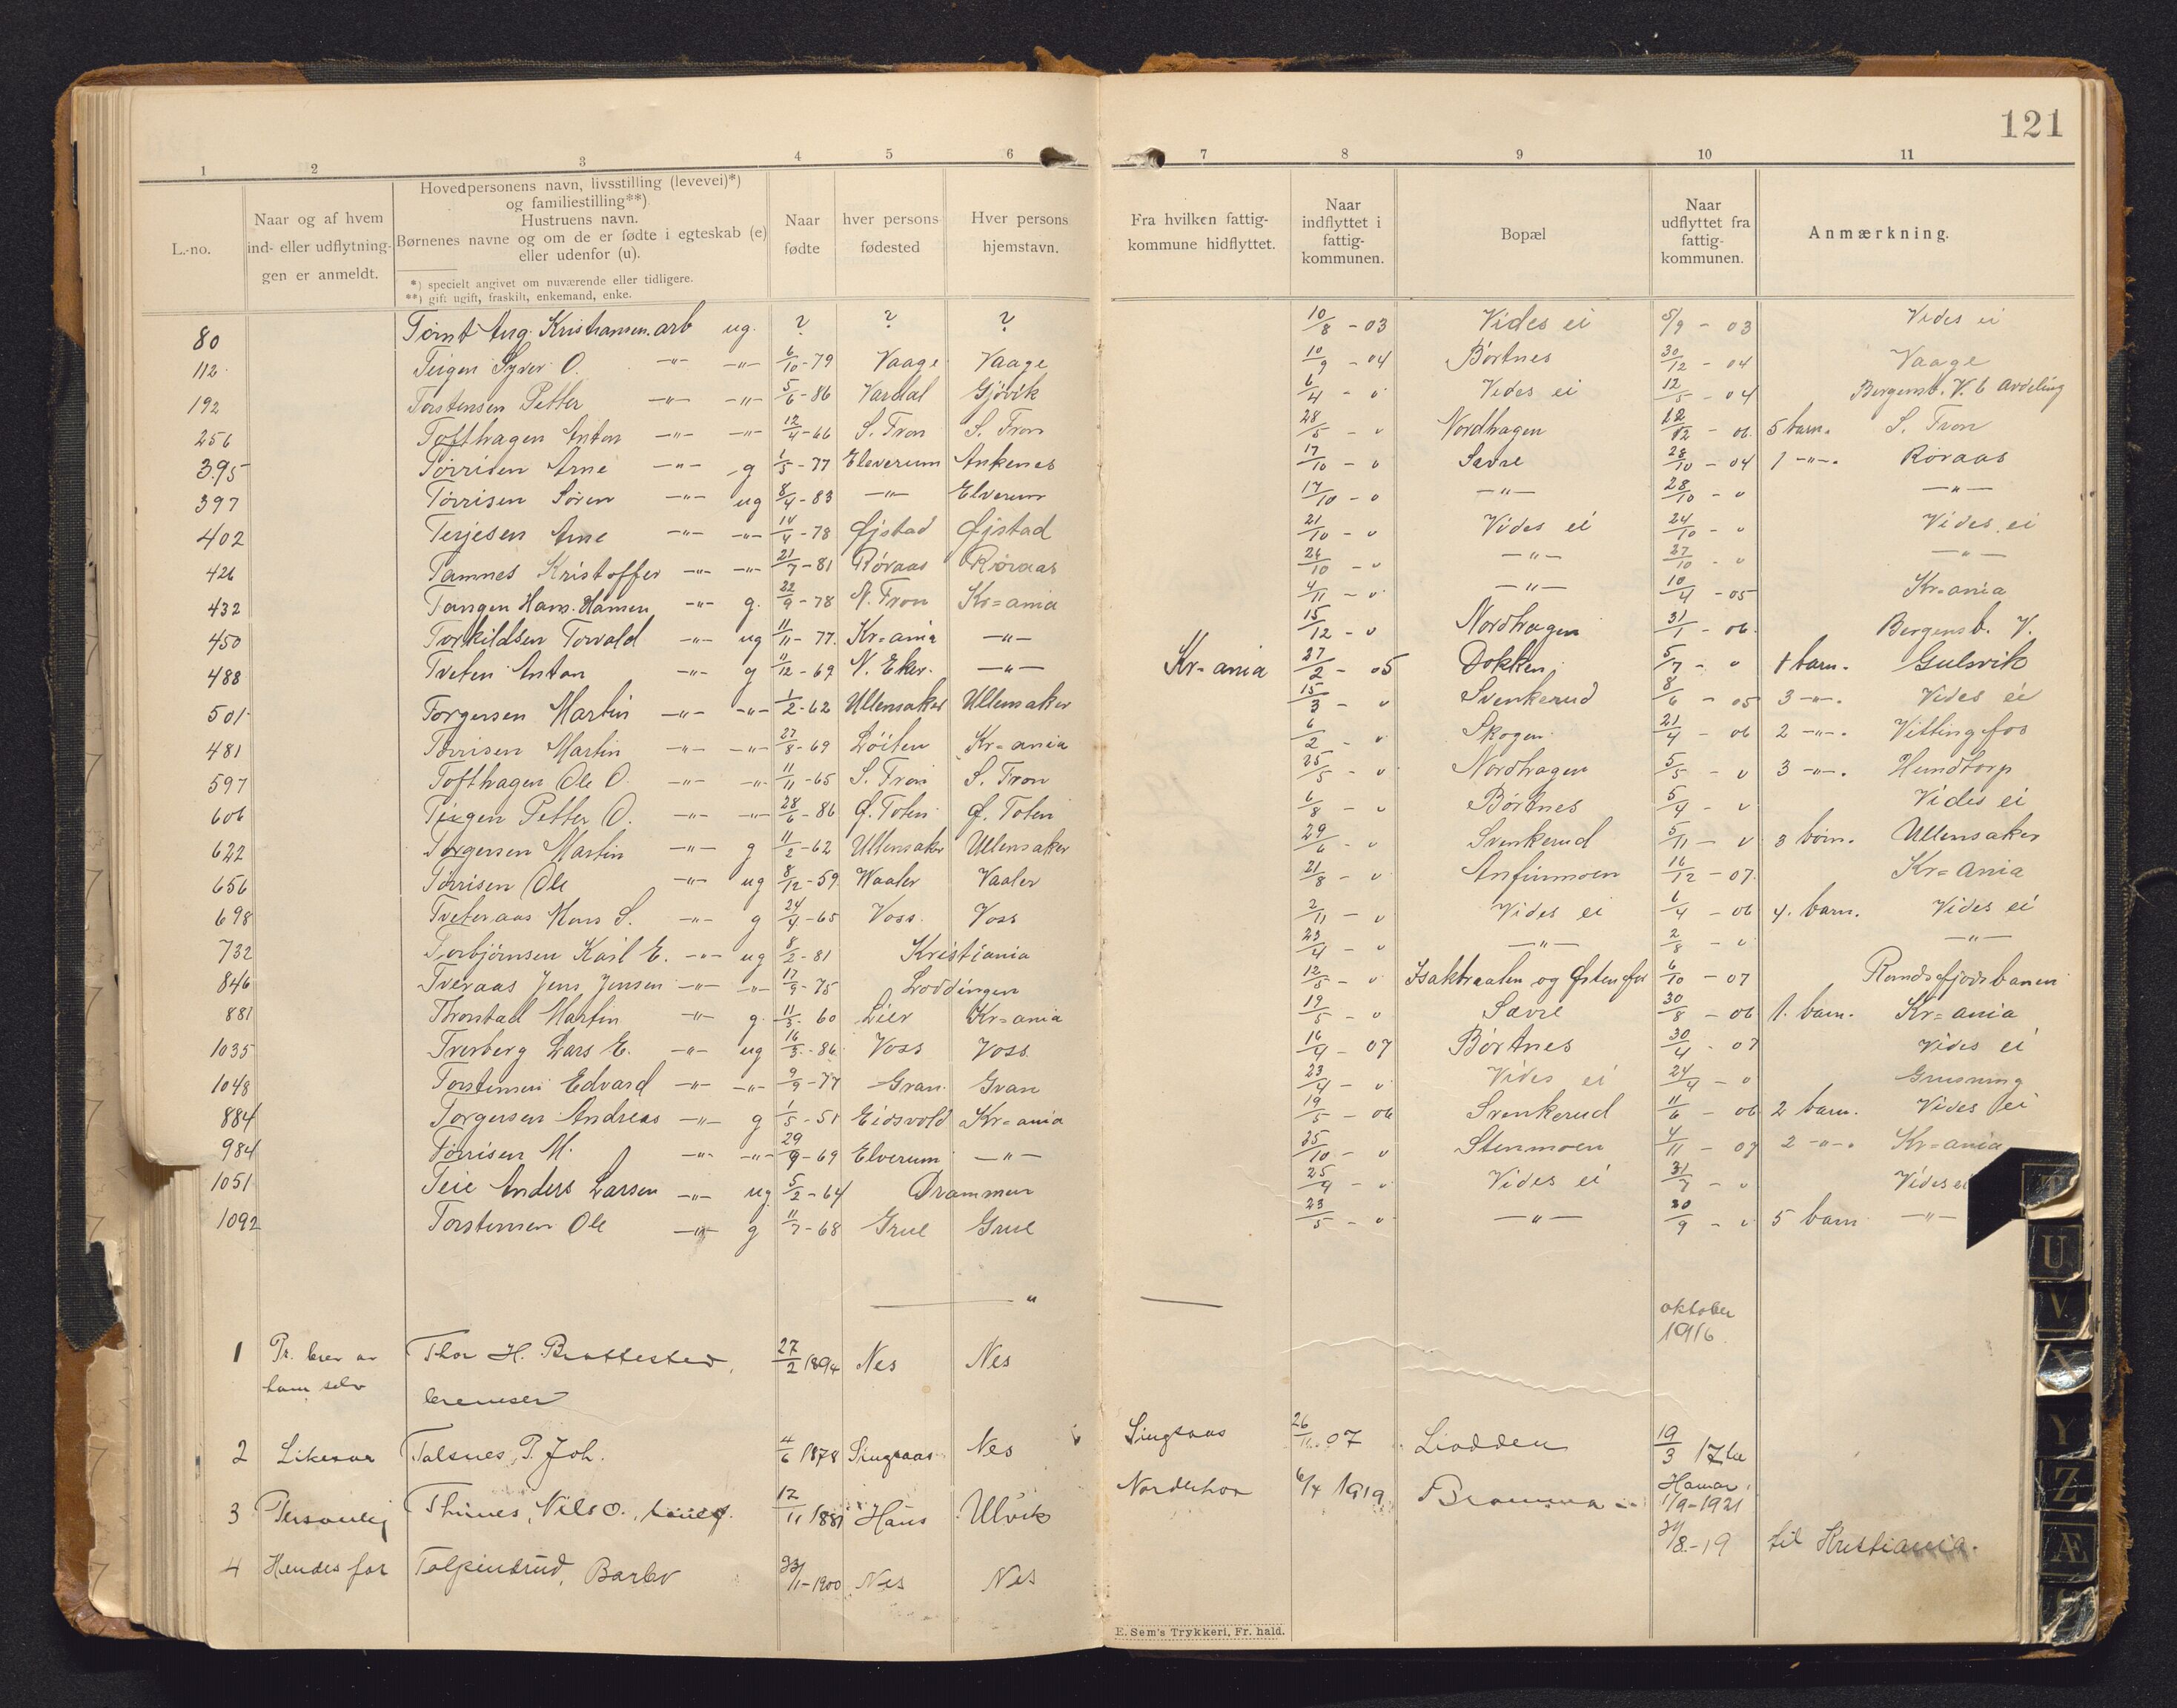 121
1 2 3 4 5 6 7 8 9 10 11
L.-no.
Naar og af hvem
ind- eller udflytning-
gen er anmeldt.
Hovedpersonens navn, livsstilling (levevei)*)
og familiestilling**)
Hustruens navn.
Børnenes navne og om de er fødte i egteskab (e)
eller udenfor (u).
*) specielt angivet om nuværende eller tidligere.
**) gift ugift, fraskilt, enkemand, enke.
Naar
fødte
hver persons
fødested
Hver persons
hjemstavn.
Fra hvilken fattig-
kommune hidflyttet.
Naar
indflyttet i
fattig-
kommunen.
Bopæl
Naar
udflyttet fra
fattig-
kommunen.
Anmærkning.
80 Aug. Kristiansen. arb ug. ? ? ? 10/8 - 03 Vides ei 5/9 - 03 Vides ei
112 Teigen Syver O. -"- -"- 6/10 - 79 Vaage Vaage 10/9 - 04 Børtnes 30/12 - 04 Vaage
192 Torstensen Petter -"- -"- 5/6 - 86 Vardal Gjövik 6/4 - " Vides ei 12/5 - 04 Bergensb. V. 6 avdeling
256 Tofthagen Anton -"- -"- 12/4 - 66 S. Fron S. Fron 28/5 - " Nordhagen 12/12 - 06 5 barn. S. Fron
395 Tørrisen Arne -"- g 1/5 - 77 Elverum Ankenes 17/10 - " Sevre 28/10 - 04 1 -"-. Røraas
397 Tørrisen Søren -"- ug 8/4 - 83 -"- Elverum 17/10 - " -"- 28/10 - " -"-
402 Terjesen Arne -"- -"- 14/4 - 78 Øjstad Øjstad 21/10 - " Vides ei 24/10 - " Vides ei
426 Tamnes Kristoffer -"- -"- 21/7 - 81 Røraas Røraas 26/10 - " -"- 27/10 - " -"-
432 Tangen Hans Hansen -"- g. 22/9 - 78 N. Fron Kr=ania 4/11 - " -"- 10/4 - 05 Kr=ania
450 Torkildsen Torvald -"- ug 11/11 - 77. Kr=ania -"- 15/12 - " Nordhagen 31/1 - 06. Bergensb. V.
488 Tveten Anton -"- g 11/12 - 69 N. Eker. -"- Kr=ania 27/2 - 05 Dokken 5/7 - " 1 barn. Gulsvik
501 Torgersen Martin -"- -"- 1/2 - 62 Ullensaker Ullensaker 15/3 - " Svenkerud 8/6 - 05 3 -"-. Vides ei
481 Tørrisen Martin -"- -"- 27/8 - 69 Løiten Kr=ania 6/2 - " Skogen 21/4 - 06 2 -"-. Vittingfos
597 Tofthagen Ole O. -"- -"- 11/11 - 65 S. Fron S. Fron 25/5 - " Nordhagen 5/5 - " 3 -"-. Hundtorp
606 Teigen Petter O. -"- -"- 28/6 - 86 Ø. Toten Ø. Toten 6/8 - " Børtnes 5/9 - " Vides ei
622 Torgersen Martin -"- g 11/2 - 62 Ullensaker Ullensaker 29/6 - " Svenkerud 5/11 - " 3 børn. Ullensaker
656 Tørrisen Ole -"- ug 8/12 - 59 Waaler Vaaler 21/8 - " Anfinmoen 16/12 - 07. Kr=ania
698 Tveteraas Mons S. -"- g 24/4 - 65 Voss. Voss 2/11 - " Vides ei 6/4 - 06 4. barn. Vides ei
732 Torbjørnsen Karl E. -"- ug 8/2 - 81 Kristiania 23/4 - " -"- 2/8 - " -"-
846 Tveraas Jens Jensen -"- -"- 17/9 - 75 Loddingen 12/5 - " Isaktraaten og Østenfor 6/10 - 07 Randsfjordsbanen
881 Thronstad Martin -"- g. 11/3 - 60 Lier Kr=ania 19/5 - " Sævre 30/8 - 06 1. barn. Kr=ania
1035 Tverberg Lars E. -"- ug 16/3 - 86 Voss Voss 16/4 - 07 Børtnes 30/4 - 07 Vides ei
1048 Torstensen Edvard -"- -"- 9/9 - 77 Gran Gran 23/4 - " Vides ei 24/4 - "
884 Torgersen Andreas -"- g 1/5 - 51 Eidsvold Kr=ania 19/5 - 06 Svenkerud 11/6 - 06 2 barn. Vides ei
984 Tørrisen M. -"- -"- 29/9 - 69 Elverum -"- 25/10 - " Stenmoen 4/11 - 07 2 -"-. Kr=ania
1051 Teie Anders Larsen -"- ug 5/2 - 64 Drammen 25/4 - " Vides ei 31/7 - " Vides ei
1092 Torstensen Ole -"- g 11/7 - 68 Grue Grue 23/5 - " -"- 30/9 - " 5 barn -"-
"
1 Pr. brev av Thor H. Brattested, 27/2 1894 Nes Nes oktober
1916.
ham selv bremser
2 Likesaa Talsnes, P. Joh. 4/6 1878 Singsaas Nes Singsaas 26/11 07 Liodden 19/3 17
3 Personlig Thünes, Nils O., 12/11 1881 Haus Ulvik Norderhov 6/4 1919 Bromma Hamar
1/9-1921
4 Hendes far Tolpinrud, Barbro 23/11-1900 Nes Nes 21/8-19 til Kristiania.
E. Sem's Trykkeri, Fr. hald.
U
V
X
Y
Z
Æ